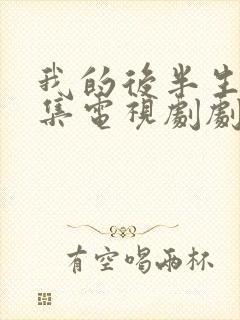 我的後半生
集電視劇劇
有空喝兩杯